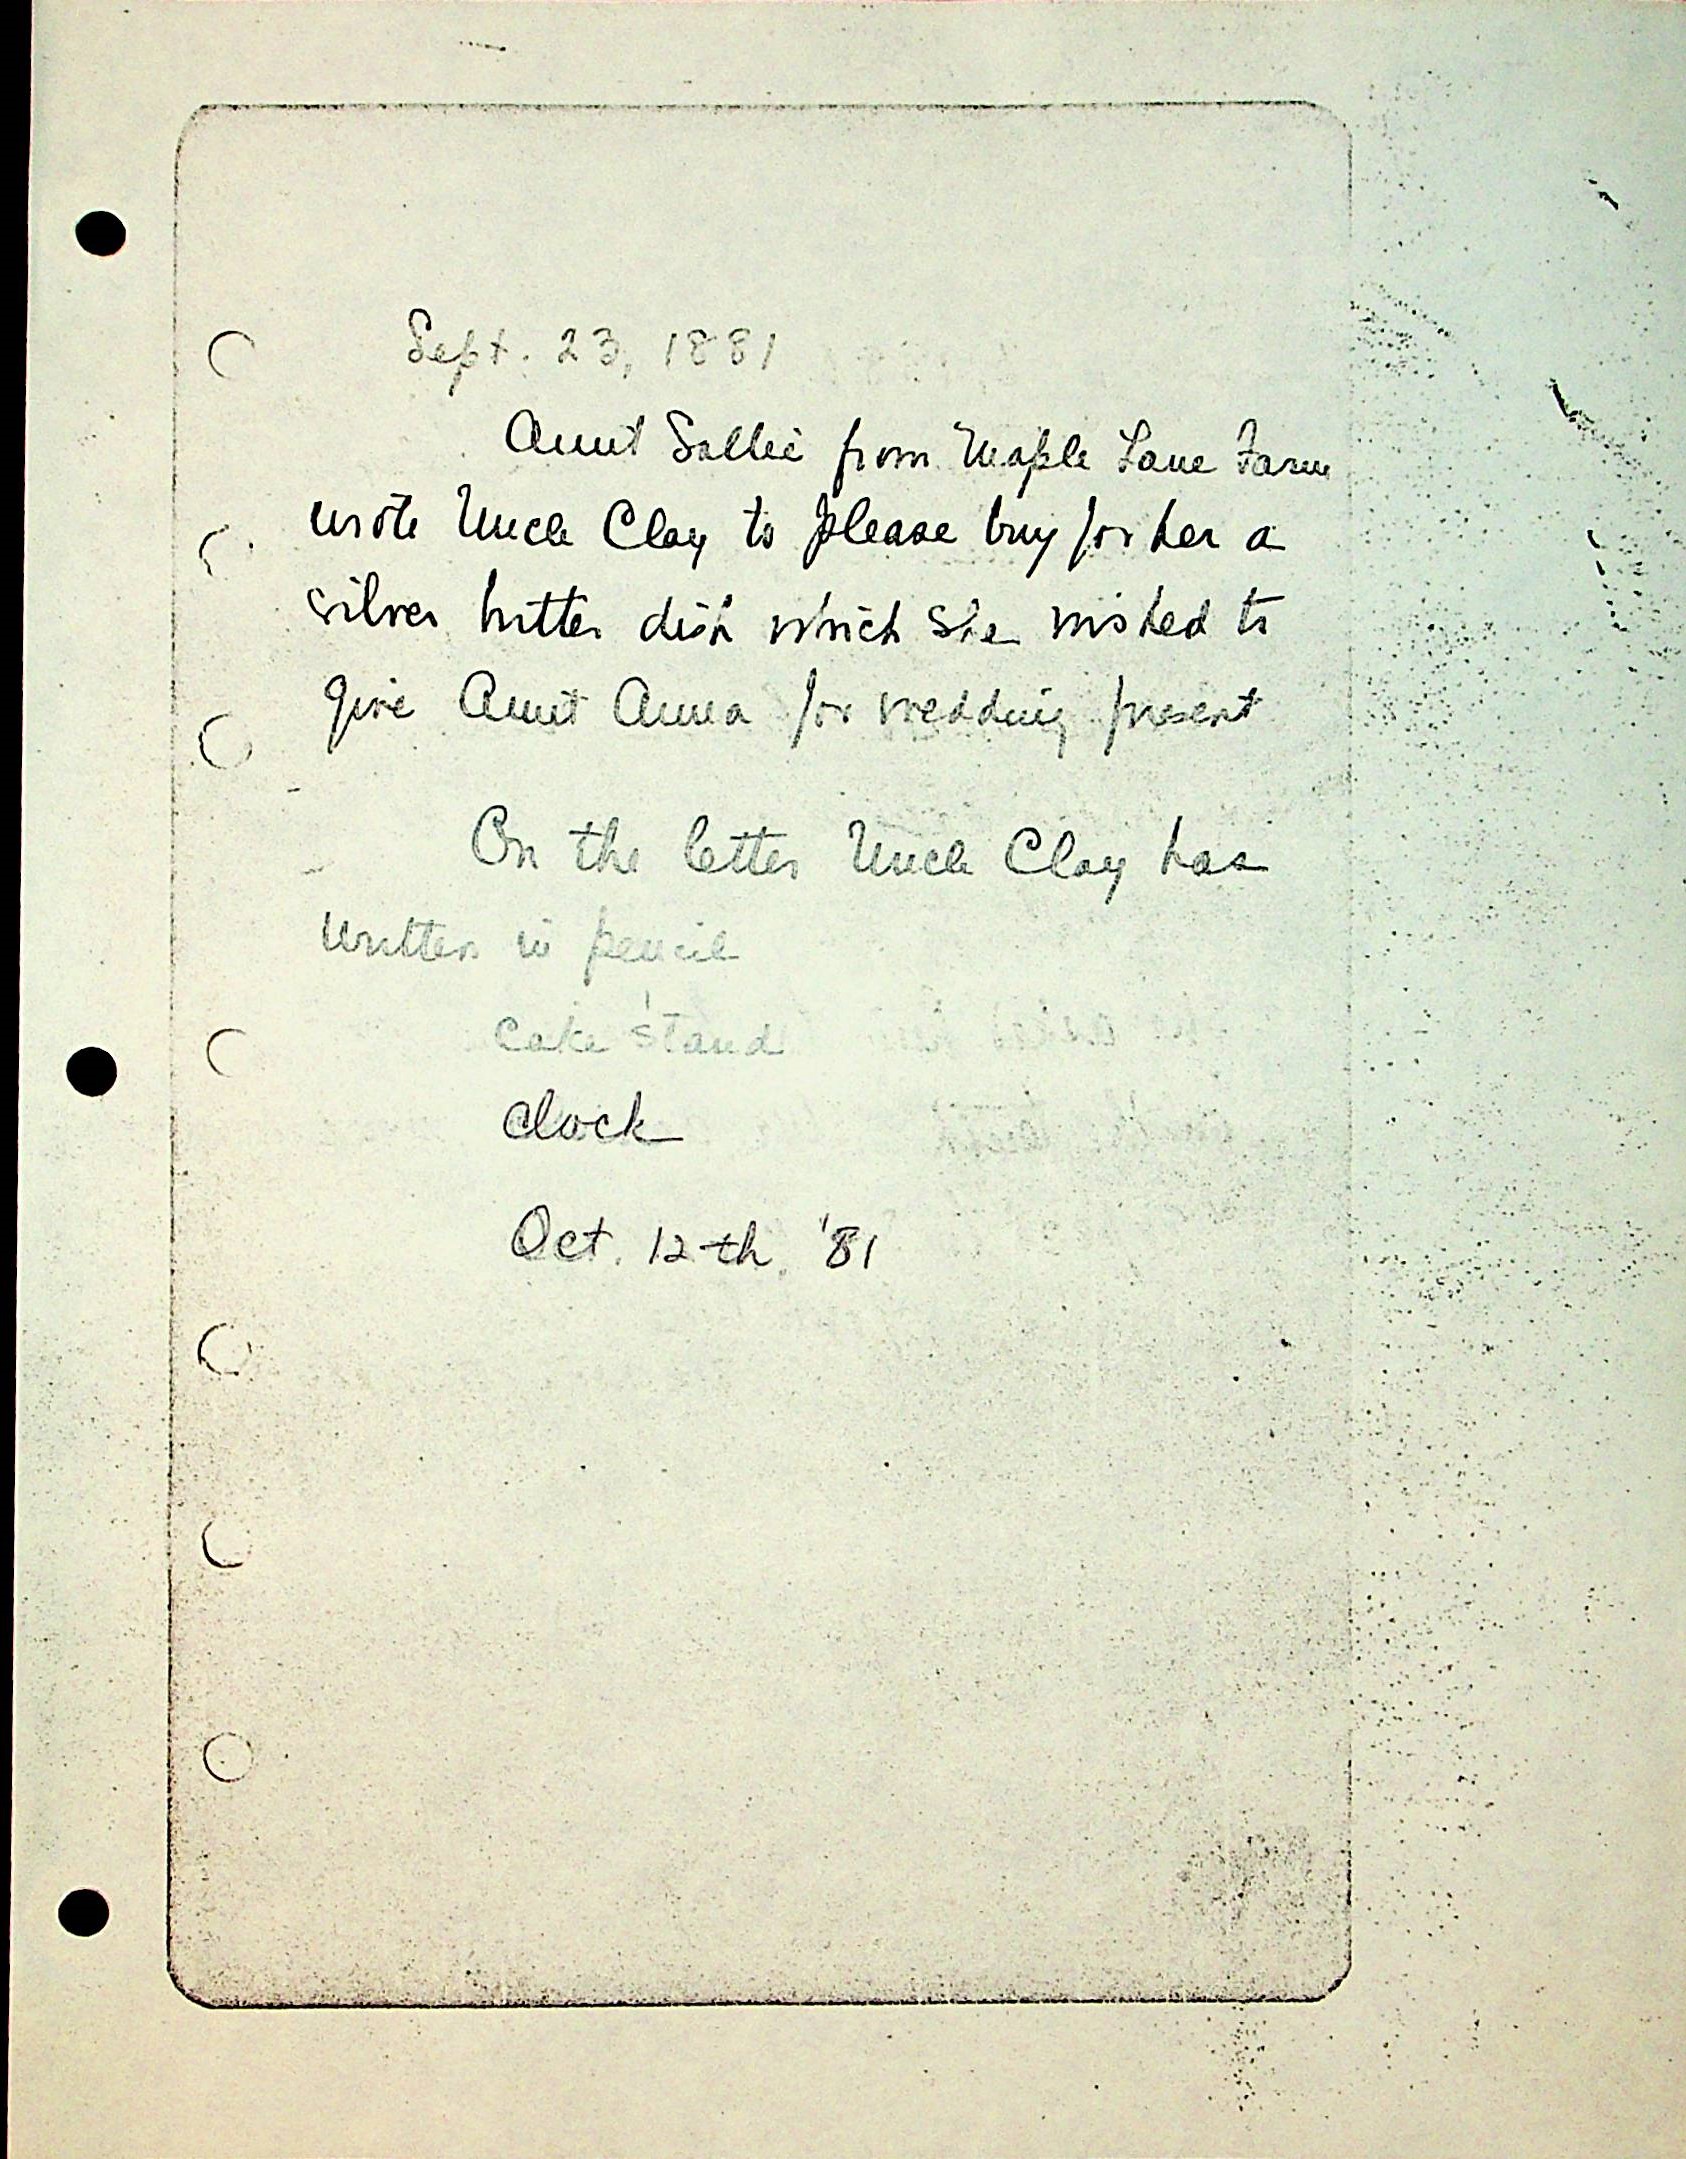 Sept. 23, 1881
Aunt Sallie from Maple Lane Farm
wrote Uncle Clay to please buy for her a
silver butter dish which she wished to
give Aunt Anna for wedding present
On the letter Uncle Clay has
written in pencil
Cake stand
Clock
Oct. 12th '81